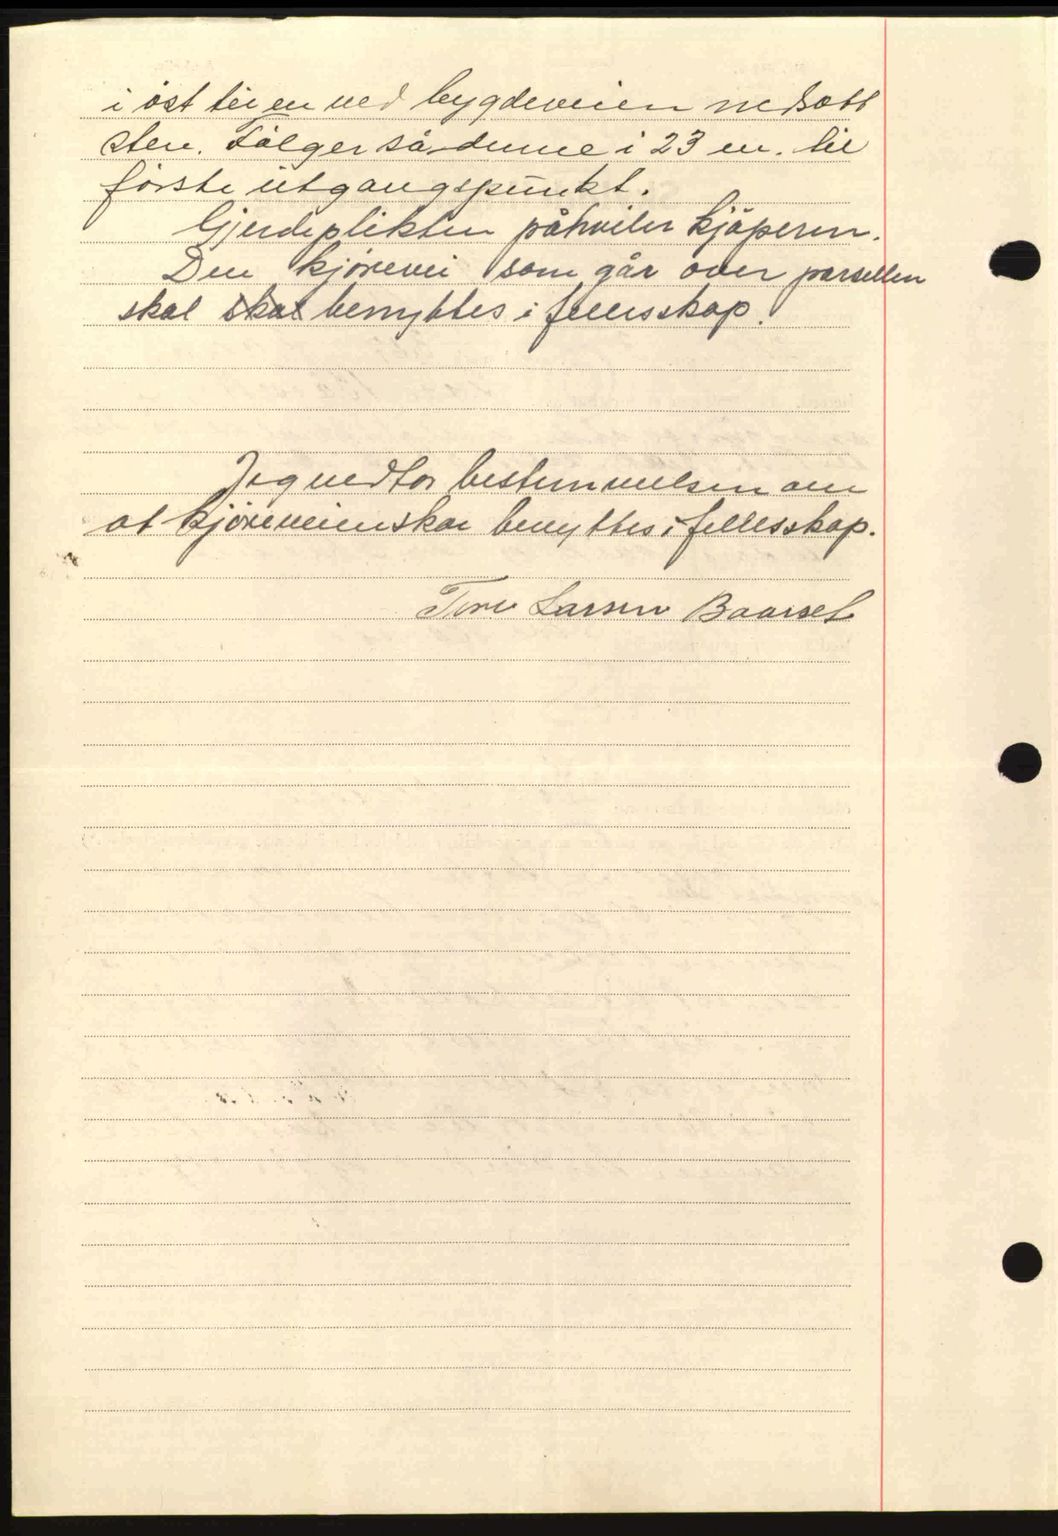 i öst til en ved bygdeveien nedsatt
sten. Fölger så denne i 23 m. til
förste utgangspunkt.
Gjerdeplikten påhviler kjöperen.
Den kjörevei som går over parsellen
skal skal benyttes i fellesskap.
Jeg vedtar bestemmelsen om
at kjöreveien skal benyttes i fellesskap.
Tore Larsen Baarset